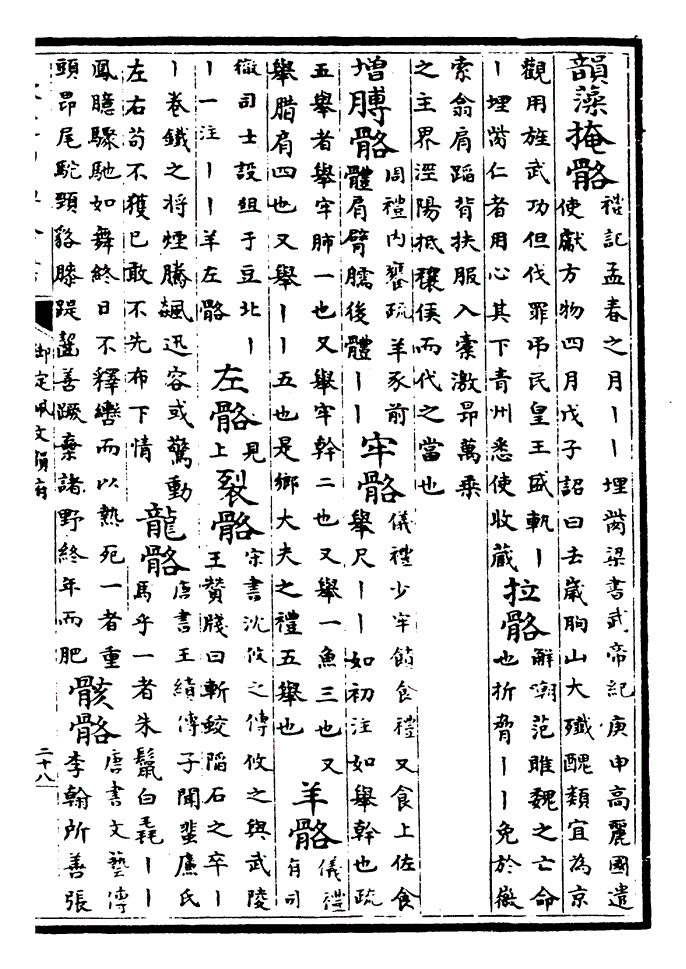 韻藻掩骼
禮記孟春之月丨丨埋胔梁書武帝紀庚申高麗國遣
使獻方物四月戊子詔曰去歲朐山大殲醜類宜為京
觀用旌武功但伐罪弔民皇王盛軌丨
丨埋胔仁者用心其下青州悉使收藏
拉骼
解嘲范雎魏之亡命
也折脅丨丨免於徽
索翕肩蹈背扶服入橐激昂萬乘
之主界涇陽抵穰侯而代之當也
增膊骼
周禮内饔疏羊豕前
體肩臂臑後體丨丨
牢骼
儀禮少牢饋食禮又食上佐食
舉尸丨丨如初注如舉幹也疏
五舉者舉牢肺一也又舉牢幹二也又舉一魚三也又
舉腊肩四也又舉丨丨五也是鄉大夫之禮五舉也
羊骼
儀禮
有司
徹司士設俎于豆北丨
丨一注丨丨羊左骼
左骼
見
上
裂骼
宋書沈攸之傳攸之與武陵
王贊牋曰斬蛟陷石之卒丨
丨卷鐵之將煙騰飆迅容或驚動
左右苟不獲已敢不先布下情
龍骼
唐書王績傳子聞蜚廉氏
馬乎一者朱鬣白毳丨丨
鳳臆驟馳如舞終日不釋轡而以熱死一者重
頭昂尾駝頸貉膝踶齧善蹶棄諸野終年而肥
骸骼
唐書文藝傳
李翰所善張
御定佩文韻府
二十八